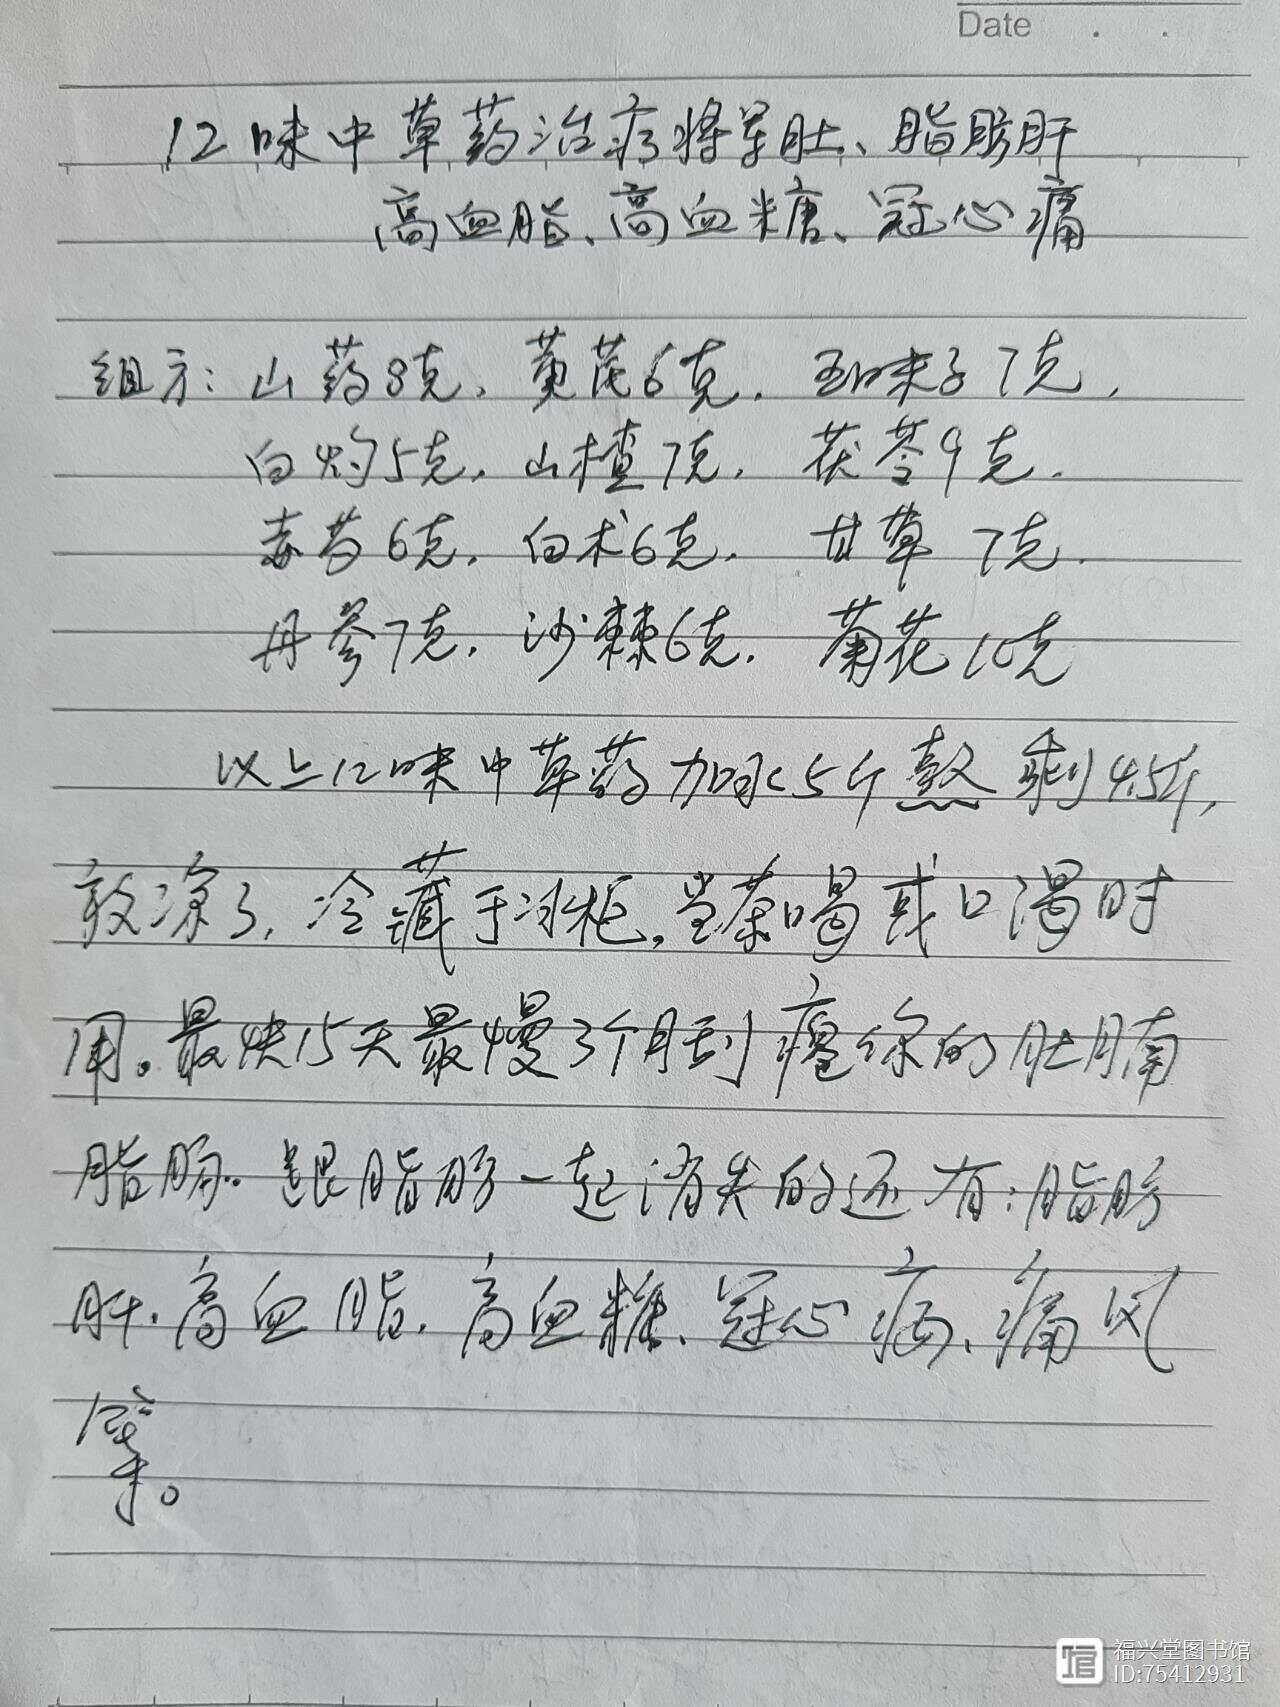 Date . .
12味中草药治疗将军肚、脂肪肝
高血脂、高血糖、冠心痛
组方：山药8克，黄芪6克．五味子7克，
白灼5克，山楂7克，茯苓9克．
赤芍6克，白术6克，甘草7克．
丹参7克，沙棘6克，菊花10克
以上12味中草药加水5斤熬剩4.5斤，
放凉了，冷藏于冰柜。当茶喝或口渴时
用。最快15天最慢3个月刮瘪你的肚腩
脂肪．跟脂肪一起消失的还有：脂肪
肝．高血脂．高血糖、冠心病、痛风
等。
福兴堂图书馆
ID:75412931